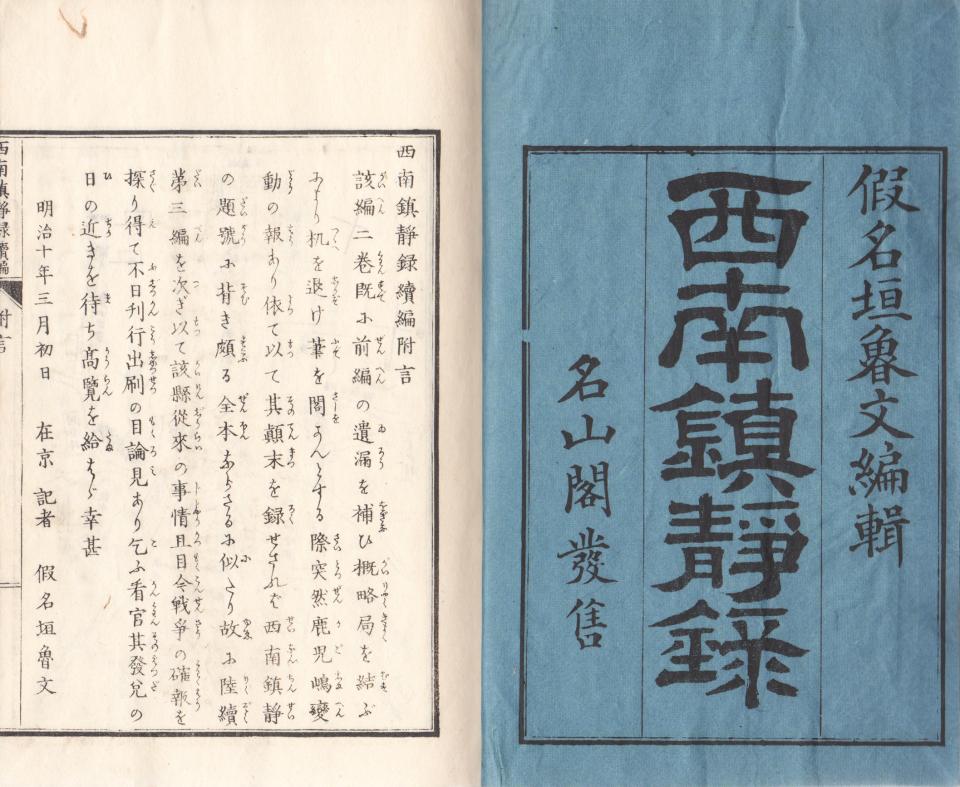 假名垣魯文編輯
西南鎮靜録
名山閣發售
西南鎮靜録續編附言
該編二巻既に前編の遺漏を補ひ概略局を結ぶ
により机を退け筆を閣かんとする際突然鹿児嶋變
動の報あり依て以て其顛末を録せされバ西南鎮靜
の題號に背き頗る全本ならさるに似たり故に陸續
第三編を次ぎ以て該縣従來の事情且目今戦爭の確報を
探り得て不日刊行出刷の目論見あり乞ふ看官其發兌の
日の近きを待ち髙覽を給はらバ幸甚
明治十年三月初日 在京 記者 假名垣魯文
西南鎮静録續編 附言